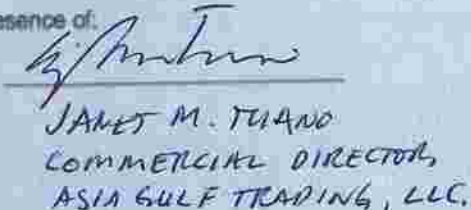 esence of:
JANET M. THANO
COMMERCIAL DIRECTOR,
ASIA GULF TRADING, LLC.